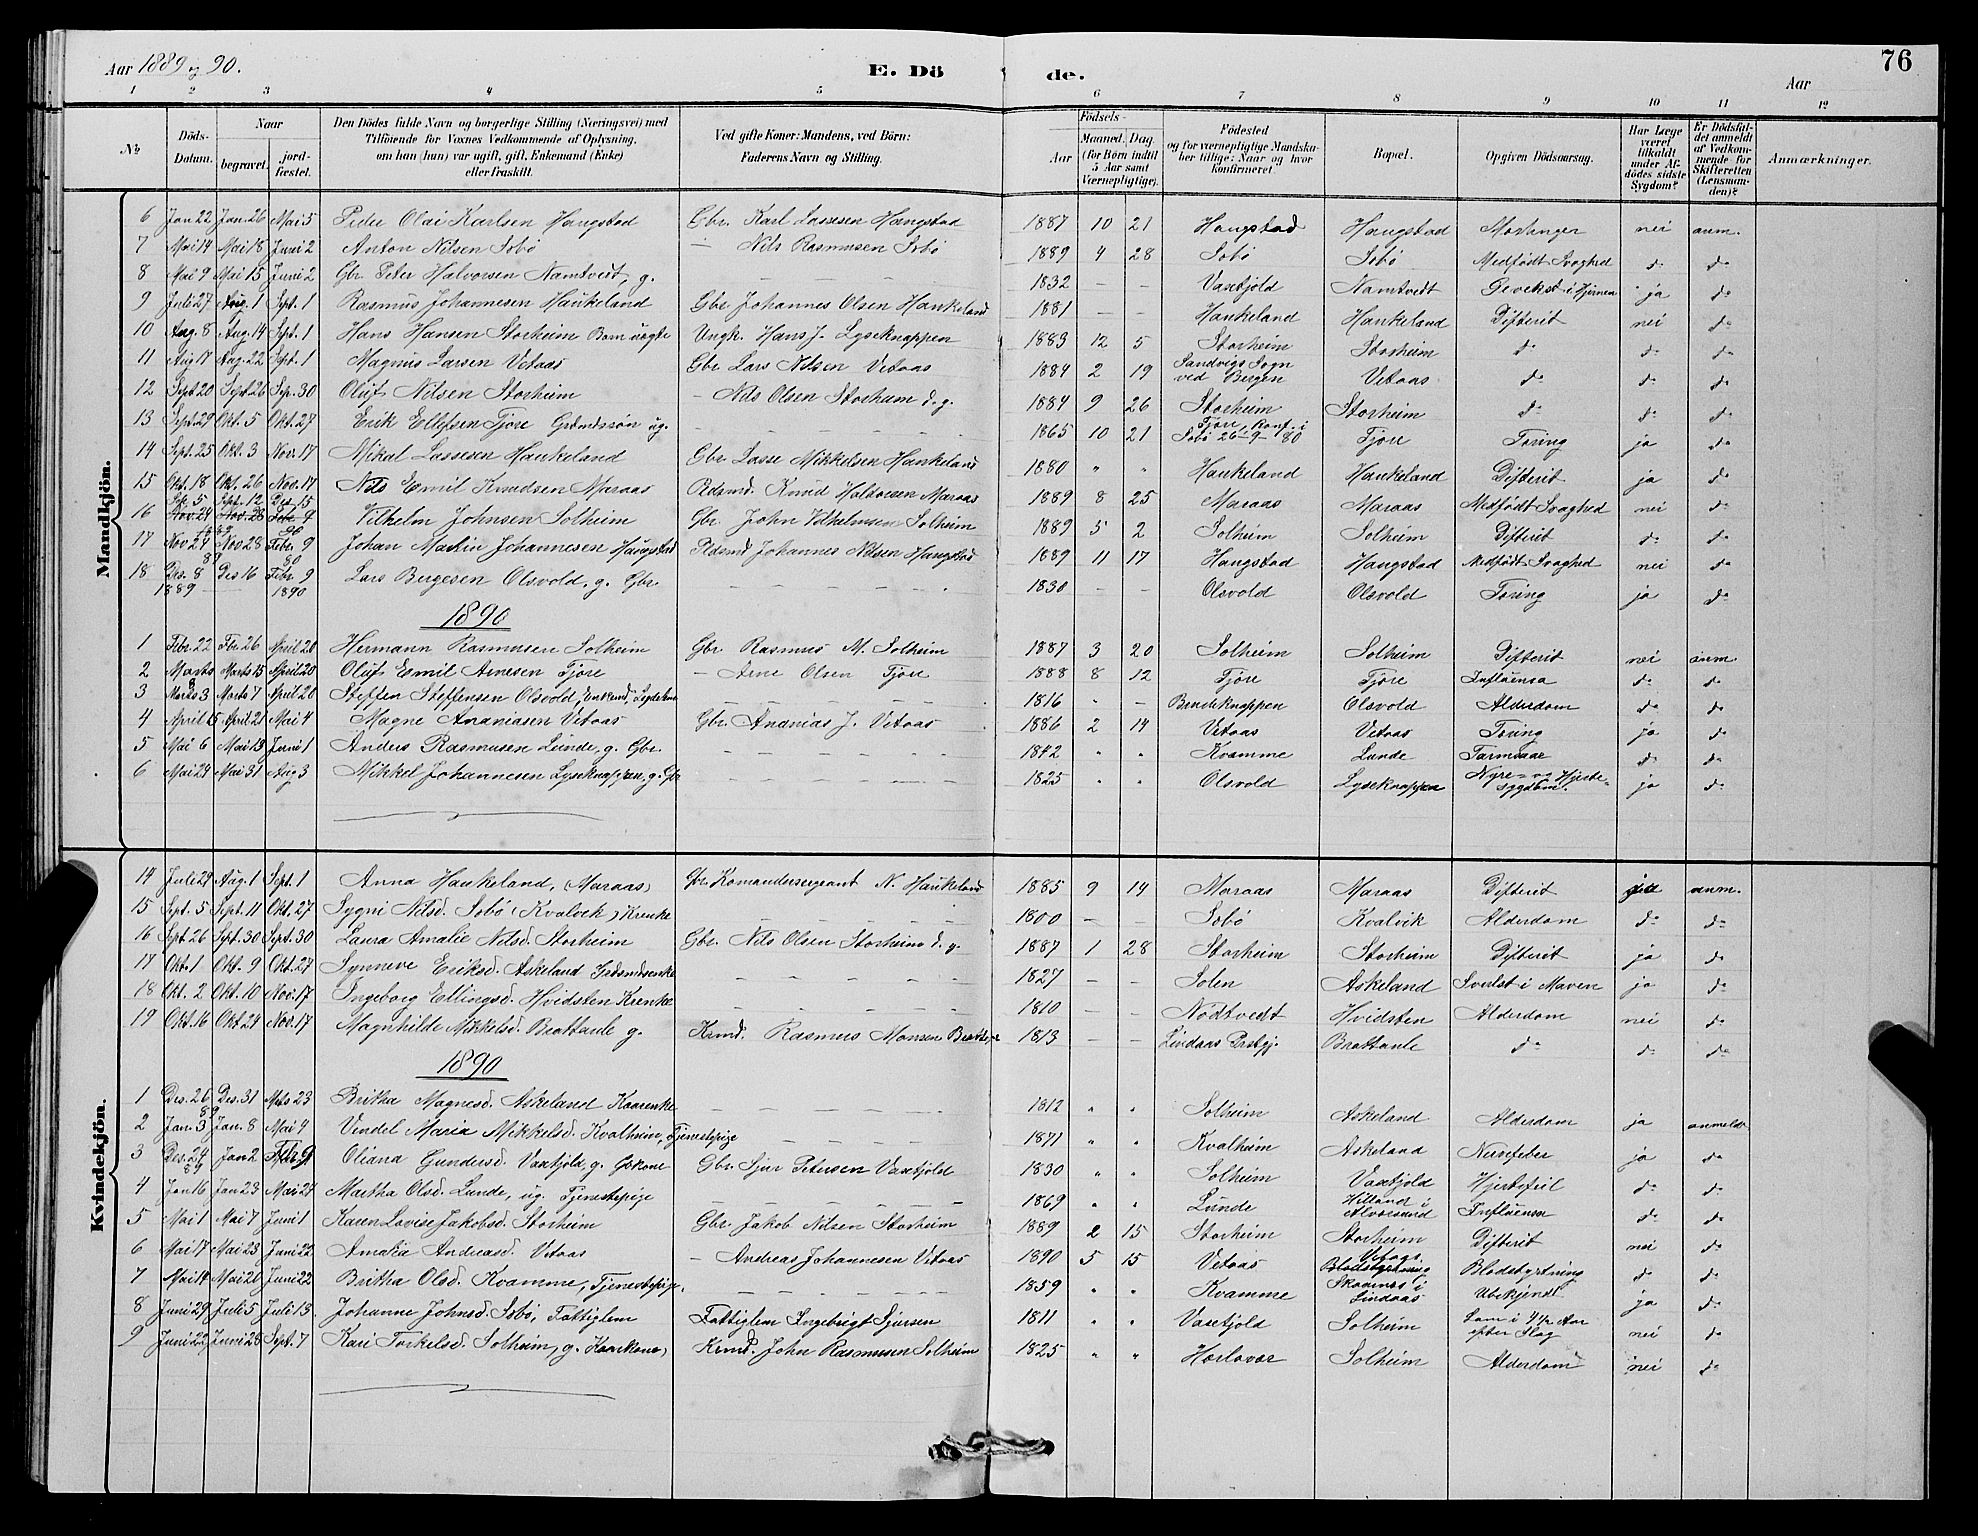 Aar 1889 og 90. E. Döde. Aar 76
1 2 3 4 5 6 7 8 9 10 11 12
№
Döds-Datum.
Naar begravet. jord-fæstet.
Den Dödes fulde Navn og borgerlige Stilling (Næringsvei) med Tilföiende for Voxnes Vedkommende af Oplysning, om han (hun) var ugift, gift, Enkemand (Enke) eller fraskilt.
Ved gifte Koner: Mandens, ved Börn: Faderens Navn og Stilling.
Födsels-
Aar Maaned. Dag. (for Börn indtil 5 Aar samt Værnepligtige).
Födested og for værnepligtige Mandskaber tillige: Naar og hvor konfirmeret.
Bopæl.
Opgiven Dödsaarsag.
Har Læge været tilkaldt under Afdödes sidste Sygdom?
Er Dödsfaldet anmeldt af Vedkommende for Skifteretten (Lensmanden)?
Anmærkninger.
Mandkjön.
6 Jan 22 Jan. 26 Mai 5 Peder Olai Karlsen Haugstad Gbr. Karl Lassesen Haugstad 1887 10 21 Haugstad Haugstad nei anm.
7 Mai 14 Mai 18 Juni 2 Anton Nilsen Isbö — Nils Rasmusen Isbö 1889 4 28 Isbö Isbö Medfödt Svaghed do do
8 Mai 9 Mai 15 Juni 2 Gbr. Peter Halvorsen Namtvedt, g. 1832 — — Vaxtjold Namtvedt i Hjernen ja do
9 Juli 27 Aug. 1 Sept. 1 Rasmus Johannesen Haukeland Gbr Johannes Olsen Haukeland 1881 — — Haukeland Haukeland Difterit nei do
10 Aug. 8 Aug. 14 Sept. 1 Hans Hansen Storheim Barn uægte Ungk. Hans J. Lyseknappen 1883 12 5 Storheim Storheim do do do
11 Aug 17 Aug. 22 Sept. 1 Magnus Larsen Vetaas Gbr Lars Nilsen Vetaas 1884 2 19 Sandvigs Sogn ved Bergen Vetaas do do do
12 Sept 20 Sept 26 Sep. 30 Oluf Nilsen Storheim — Nils Olsen Storheim d. y. 1884 9 26 Storheim Storheim do do do
13 Sept. 29 Okt. 5 Okt. 27 Erik Ellefsen Fjöre Grdmdssön ug. 1865 10 21 Fjöre, Konf. i Isbö 26-9-80 Fjöre Tæring ja do
14 Sept. 25 Okt. 3 Nov. 17 Mikal Lassesen Haukeland Gbr. Lasse Mikkelsen Haukeland 1880 " " Haukeland Haukeland Difterit ja do
15 Okt. 18 Okt. 26 Nov. 17 Nils Emil Knudsen Maraas Pldsmd. Knud Halvorsen Maraas 1889 8 25 Maraas Maraas Medfödt Svaghed nei do
16 Sep. 5 Sept. 12 Des 15 Vilhelm Johnsen Solheim Gbr. John Vilhelmsen Solheim 1889 5 2 Solheim Solheim Difterit do do
17 Nov 24 Nov 28 Febr. 9 90 Johan Martin Johannesen Haugstad Pldsmd Johannes Nilsen Haugstad 1889 11 17 Haugstad Haugstad Medfödt Svaghed nei do
18 Des. 8 1889 Des 16 Febr. 9 1890 Lars Börgesen Olsvold, g. Gbr. 1830 — — Olsvold Olsvold Tæring ja do
1890
1 Febr. 22 Fbr. 26 April 20 Hermann Rasmusen Solheim Gbr Rasmus M. Solheim 1887 3 20 Solheim Solheim Difterit nei anm.
2 Marts 8 Marts 15 April 20 Oluf Emil Arnesen Fjöre — Arne Olsen Fjöre 1888 8 12 Fjöre Fjöre Influensa do do
3 Marts 3 Marts 7 April 20 Steffen Steffensen Olsvold, Enkmd, 1816 — — Olsvold Alderdom do do
4 April 15 April 21 Mai 4 Magne Ananiasen Vetaas Gbr. Ananias J. Vetaas 1886 2 14 Vetaas Vetaas Tæring ja do
5 Mai 6 Mai 13 Juni 1 Anders Rasmusen Lunde, g. Gbr. 1842 " " Kvamme Lunde do do
6 Mai 24 Mai 31 Aug 3 Mikkel Johannesen Lyseknappen, g. Gbr 1825 " " Olsvold Lyseknappen Nyre- og Hjerte-sygdom. ja do
Kvindekjön.
14 Juli 29 Aug. 1 Sept. 1 Anna Haukeland, (Maraas) Gbr. Komandersergeant N. Haukeland 1885 9 14 Maraas Maraas Difterit anm.
15 Sept. 5 Sept. 11 Okt. 27 Sygni Nilsd. Isbö (Kvalvik) Krenke 1800 — — Isbö Kvalvik Alderdom do do
16 Sept 26 Sept. 30 Sept. 30 Laura Amalie Nilsd. Storheim Gbr. Nils Olsen Storheim d. y. 1887 1 28 Storheim Storheim Difterit ja do
17 Okt. 1 Okt. 9 Okt. 27 Synneve Eriksd. Askeland 1827 — — Askeland Svulst i Maven ja do
18 Okt. 2 Okt. 10 Nov. 17 Ingeborg Ellingsd. Hvidsten Krenke 1810 — — Nödtvedt Hvidsten Alderdom nei do
19 Okt. 16 Okt. 24 Nov. 17 Magnhilde Mikkelsd. Brattaule g. Krmd. Rasmus Monsen 1813 — — Lindaas Prstgj. Brattaule do do do
1890
1 Des. 26 89 Des. 31 Mrts 23 Britha Magnesd. Askeland Kaarenke 1812 " " Solheim Askeland Alderdom ja anmeldt
2 Jan. 3 Jan. 8 Mai 4 Vendel Maria Mikkelsd. Kvalheim, Tjenestepige 1871 " " Kvalheim Askeland Nervefeber ja do
3 Des. 24 89 Jan 2 Febr 9 Oliana Gundersd. Vaxtjold, g. Gbkone Gbr. Sjur Petersen Vaxtjold 1830 " " Solheim Vaxtjold Hjertefeil do do
4 Jan 16 Jan 23 Mai 24 Martha Olsd. Lunde, ug. Tjenestepige 1869 " " Lunde Hilland i Alversund Influensa do do
5 Mai 1 Mai 7 Juni 1 Karen Lovise Jakobsd. Storheim Gbr. Jakob Nilsen Storheim 1889 2 15 Storheim Storheim Difterit nei do
6 Mai 17 Mai 23 Juni 22 Amalia Andreasd. Vetaas — Andreas Johannesen Vetaas 1890 5 15 Vetaas Vetaas Blodstyrtning do do
7 Mai 14 Mai 20 Juni 22 Britha Olsd. Kvamme, Tjenestepige, 1859 " " Kvamme i Lindaas Ubekjendt ja do
8 Juni 29 Juli 5 Juli 13 Johanne Johnsd. Isbö, Fattiglem Fattiglem Ingebrigt Sjursen 1811 " " Vaxtjold Solheim Lam i 4½ Aar efter Slag nei do
9 Juni 22 Juni 28 Sept. 7 Kari Torkelsd. Solheim, g. Kaarkone, Krmd. John Rasmusen Solheim 1825 " " Solheim Alderdom nei do